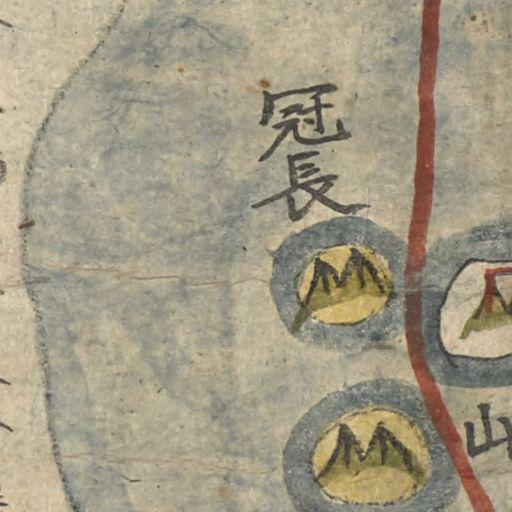 冠長
山